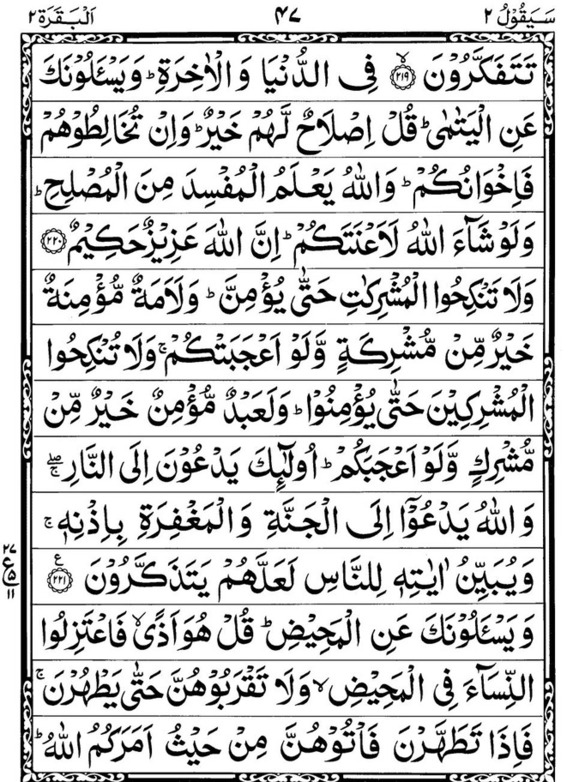 سَيَقُوْلُ ٢ ٤٧ اَلْبَقَرَة ٢
تَتَفَكَّرُوْنَ ۙ﴿٢١٩﴾ فِى الدُّنْيَا وَ الْاٰخِرَةِ ؕ وَ يَسْـَٔلُوْنَكَ
عَنِ الْيَتٰمٰى ؕ قُلْ اِصْلَاحٌ لَّهُمْ خَيْرٌ ؕ وَاِنْ تُخَالِطُوْهُمْ
فَاِخْوَانُكُمْ ؕ وَاللّٰهُ يَعْلَمُ الْمُفْسِدَ مِنَ الْمُصْلِحِ ؕ
وَلَوْ شَآءَ اللّٰهُ لَاَعْنَتَكُمْ ؕ اِنَّ اللّٰهَ عَزِيْزٌ حَكِيْمٌ ﴿٢٢٠﴾
وَلَا تَنْكِحُوا الْمُشْرِكٰتِ حَتّٰى يُؤْمِنَّ ؕ وَلَاَمَةٌ مُّؤْمِنَةٌ
خَيْرٌ مِّنْ مُّشْرِكَةٍ وَّلَوْ اَعْجَبَتْكُمْ ۚ وَلَا تُنْكِحُوا
الْمُشْرِكِيْنَ حَتّٰى يُؤْمِنُوْا ؕ وَلَعَبْدٌ مُّؤْمِنٌ خَيْرٌ مِّنْ
مُّشْرِكٍ وَّلَوْ اَعْجَبَكُمْ ؕ اُولٰٓئِكَ يَدْعُوْنَ اِلَى النَّارِ ۖۚ
وَاللّٰهُ يَدْعُوْٓا اِلَى الْجَنَّةِ وَالْمَغْفِرَةِ بِاِذْنِهٖ ۚ
وَيُبَيِّنُ اٰيٰتِهٖ لِلنَّاسِ لَعَلَّهُمْ يَتَذَكَّرُوْنَ ﴿٢٢١﴾ ع
٢٧ ع ٥ ١١
وَيَسْـَٔلُوْنَكَ عَنِ الْمَحِيْضِ ؕ قُلْ هُوَ اَذًى ۙ فَاعْتَزِلُوا
النِّسَآءَ فِى الْمَحِيْضِ ۙ وَلَا تَقْرَبُوْهُنَّ حَتّٰى يَطْهُرْنَ ۚ
فَاِذَا تَطَهَّرْنَ فَاْتُوْهُنَّ مِنْ حَيْثُ اَمَرَكُمُ اللّٰهُ ؕ